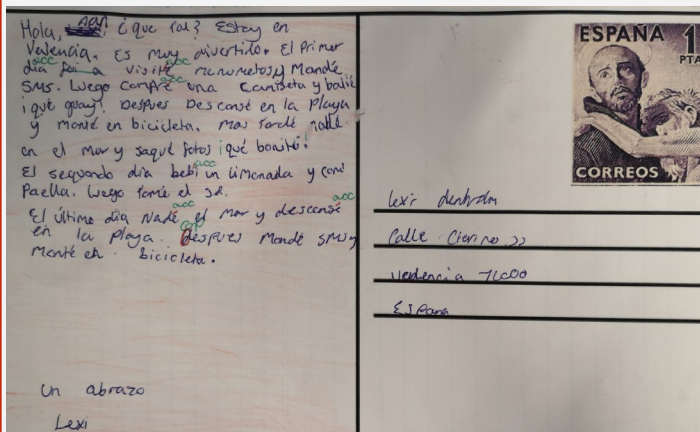 Hola, ¿que tal? Estoy en
Valencia. Es muy divertido. El Primer
día fui a visité monumetos y Mandé
SMS. Luego compré una camiseta y bailé
¡qué guay!. Despues Descansé en la Playa
y monté en bicicleta. Mas tarde nadé
en el mar y saqué fotos ¡qué bonito!
El segundo día bebí un limonada y comí
Paella. Luego tomé el sol.
El último día Nadé el mar y descansé
en la Playa. Despues Mandé SMS y
monté en bicicleta.
Un abrazo
Lexi
acc
acc
acc
acc
acc
acc
cap
ESPAÑA 1
PTA
CORREOS
Lexi
Calle
España